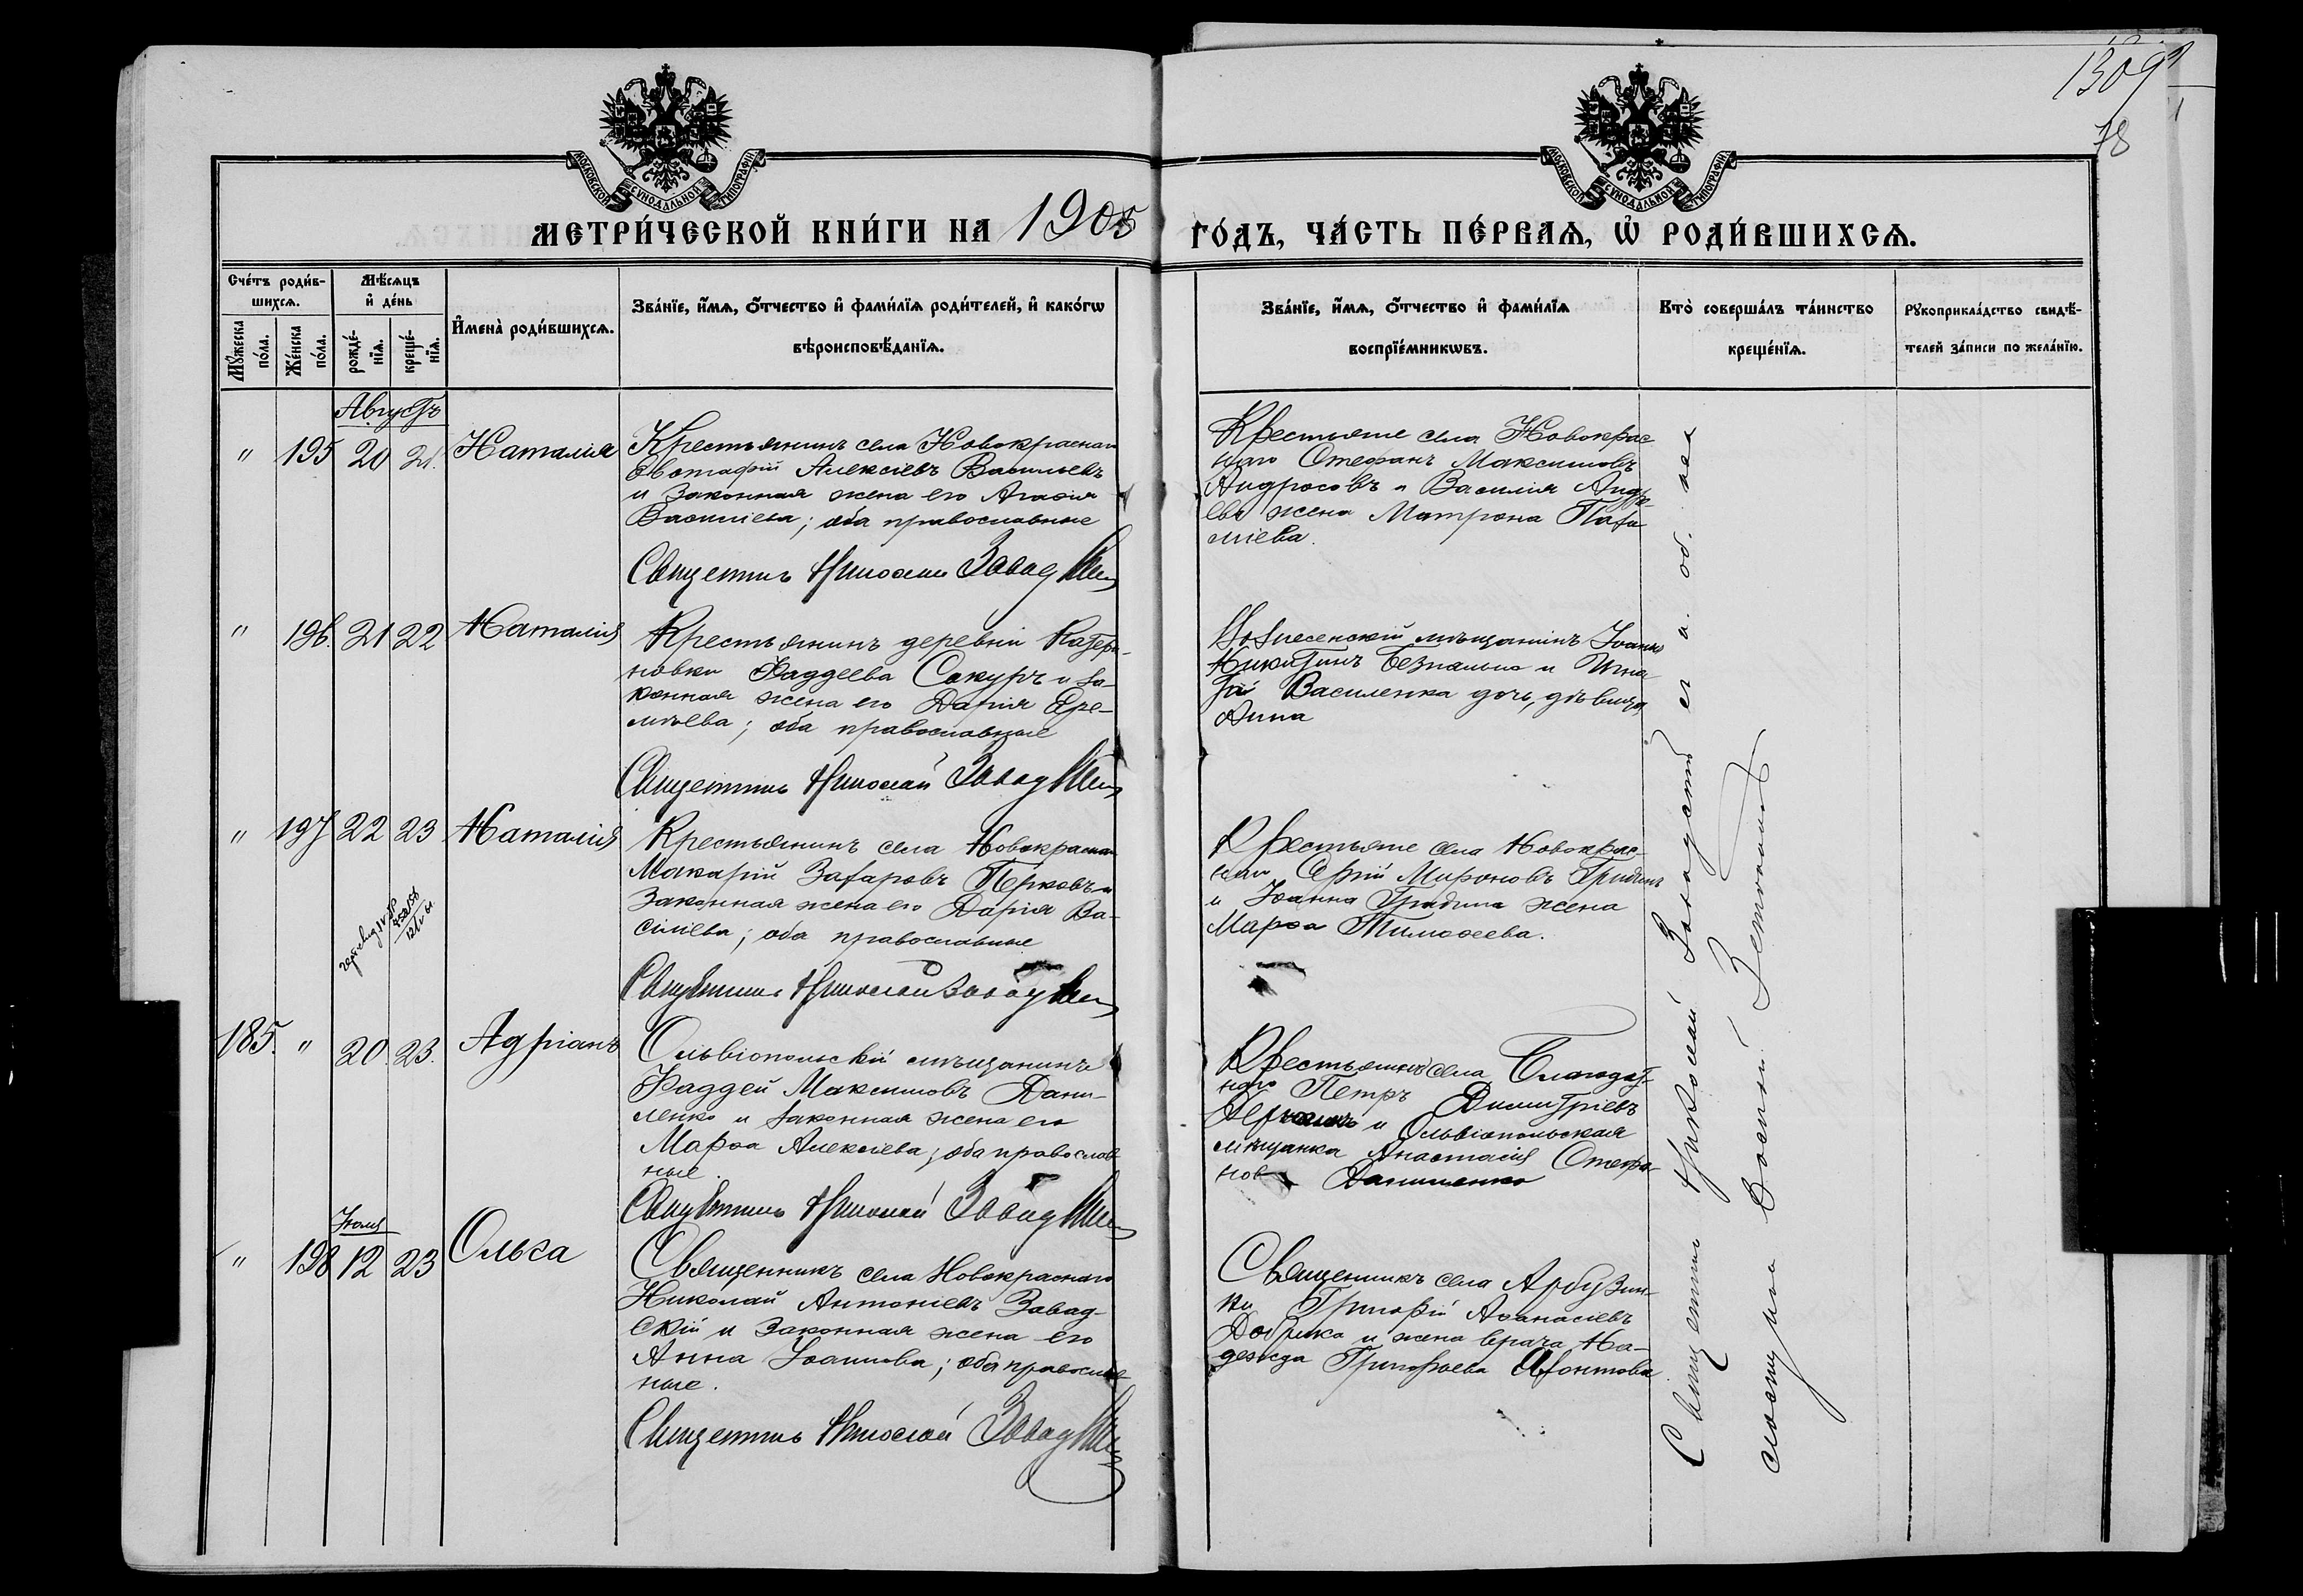 1309
78
МОСКОВСКОЙ СѴНОДАЛЬНОЙ ТИПОГРАФІИ
МОСКОВСКОЙ СѴНОДАЛЬНОЙ ТИПОГРАФІИ
МЕТРИ́ЧЕСКОЙ КНИ́ГИ НА 1905 ГО́ДЪ, ЧА́СТЬ ПЕ́РВАѦ, Ѽ РОДИ́ВШИХСѦ.
Сче́тъ роди́в-
шихсѧ.
Мꙋ́жеска
по́ла.
Же́нска
по́ла.
Мѣ́сѧцъ
и҆ де́нь
рожде́-
нїѧ.
креще́-
нїѧ.
И҆мена̀ роди́вшихсѧ.
Зва́нїе, и҆́мѧ, ѻ҆́тчество и҆ фами́лїѧ роди́телей, и҆ како́гѡ
вѣроисповѣ́данїѧ.
Зва́нїе, и҆́мѧ, ѻ҆́тчество и҆ фами́лїѧ
воспрїе́мникѡвъ.
Кто̀ соверша́лъ та́инство
креще́нїѧ.
Рꙋкоприкла́дство свидѣ́-
телей за́писи по жела́нїю.
Августъ
" 195 20 21. Наталия
Крестьянинъ села Новокраснаго
Евстафій Алексіевъ Васильевъ
и законная жена его Агафія
Василіева; оба православные
Священникъ Николай Завадскій
Крестьяне села Новокрас
наго Стефанъ Максимовъ
Андросовъ и Василія Андре-
ева жена Матрона
" 196. 21 22 Наталія
Крестьянинъ деревни Катери-
новки Фаддеева Сокуръ и за-
конная жена его Дарія Ере-
міева; оба православные
Священникъ Николай Завадскій
Вознесенскій мѣщанинъ Іоаннъ
Никитинъ и Игна
тія Василенка дочь, дѣвица
Анна
" 197 22 23 Наталія
Крестьянинъ села Новокраснаго
Макарій Захаровъ Перковъ и
законная жена его Дарія Ва-
силіева; оба православные
Священникъ Николай Завадскій
Крестьяне села Новокрас-
наго Мироновъ Гридинъ
и Іоанна Гридина жена
Марѳа Тимоѳеева.
185. " 20. 23. Адріанъ
Ольвіопольскій мѣщанинъ
Фаддей Максимовъ Дани-
ленко и законная жена его
Марѳа Алексіева; оба православ
ные
Священникъ Николай Завадскій
Крестьянинъ села Благодат-
наго Петръ Димитріевъ
и Ольвіопольская
мѣщанка Анастасія Стефа-
нова Даниленко
Іюля
" 198 12 23 Ольга
Священникъ села Новокраснаго
Николай Антоніевъ Завад-
скій и законная жена его
Анна Іоаннова; оба православ-
ные.
Священникъ Николай Завадскій
Священникъ села Арбузин-
ки Григорій Аѳанасіевъ
и жена врача На-
дежда Григорьева
Священникъ Николай Завадскій